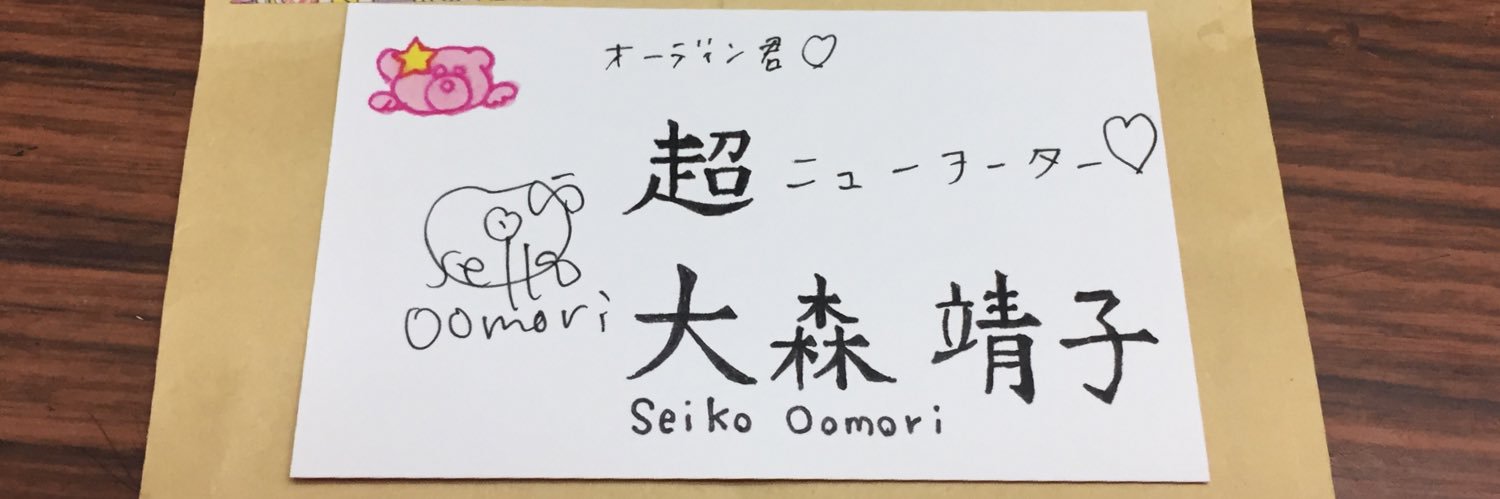 オーディン君♡
超ニューヨーター♡
seiko
oomori
大森 靖子
Seiko Oomori